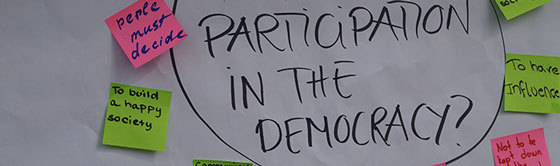 people
must
decide
PARTICIPATION
IN THE
DEMOCRACY?
To build
a happy
society
society
To have
Influence
Not to be
kept down